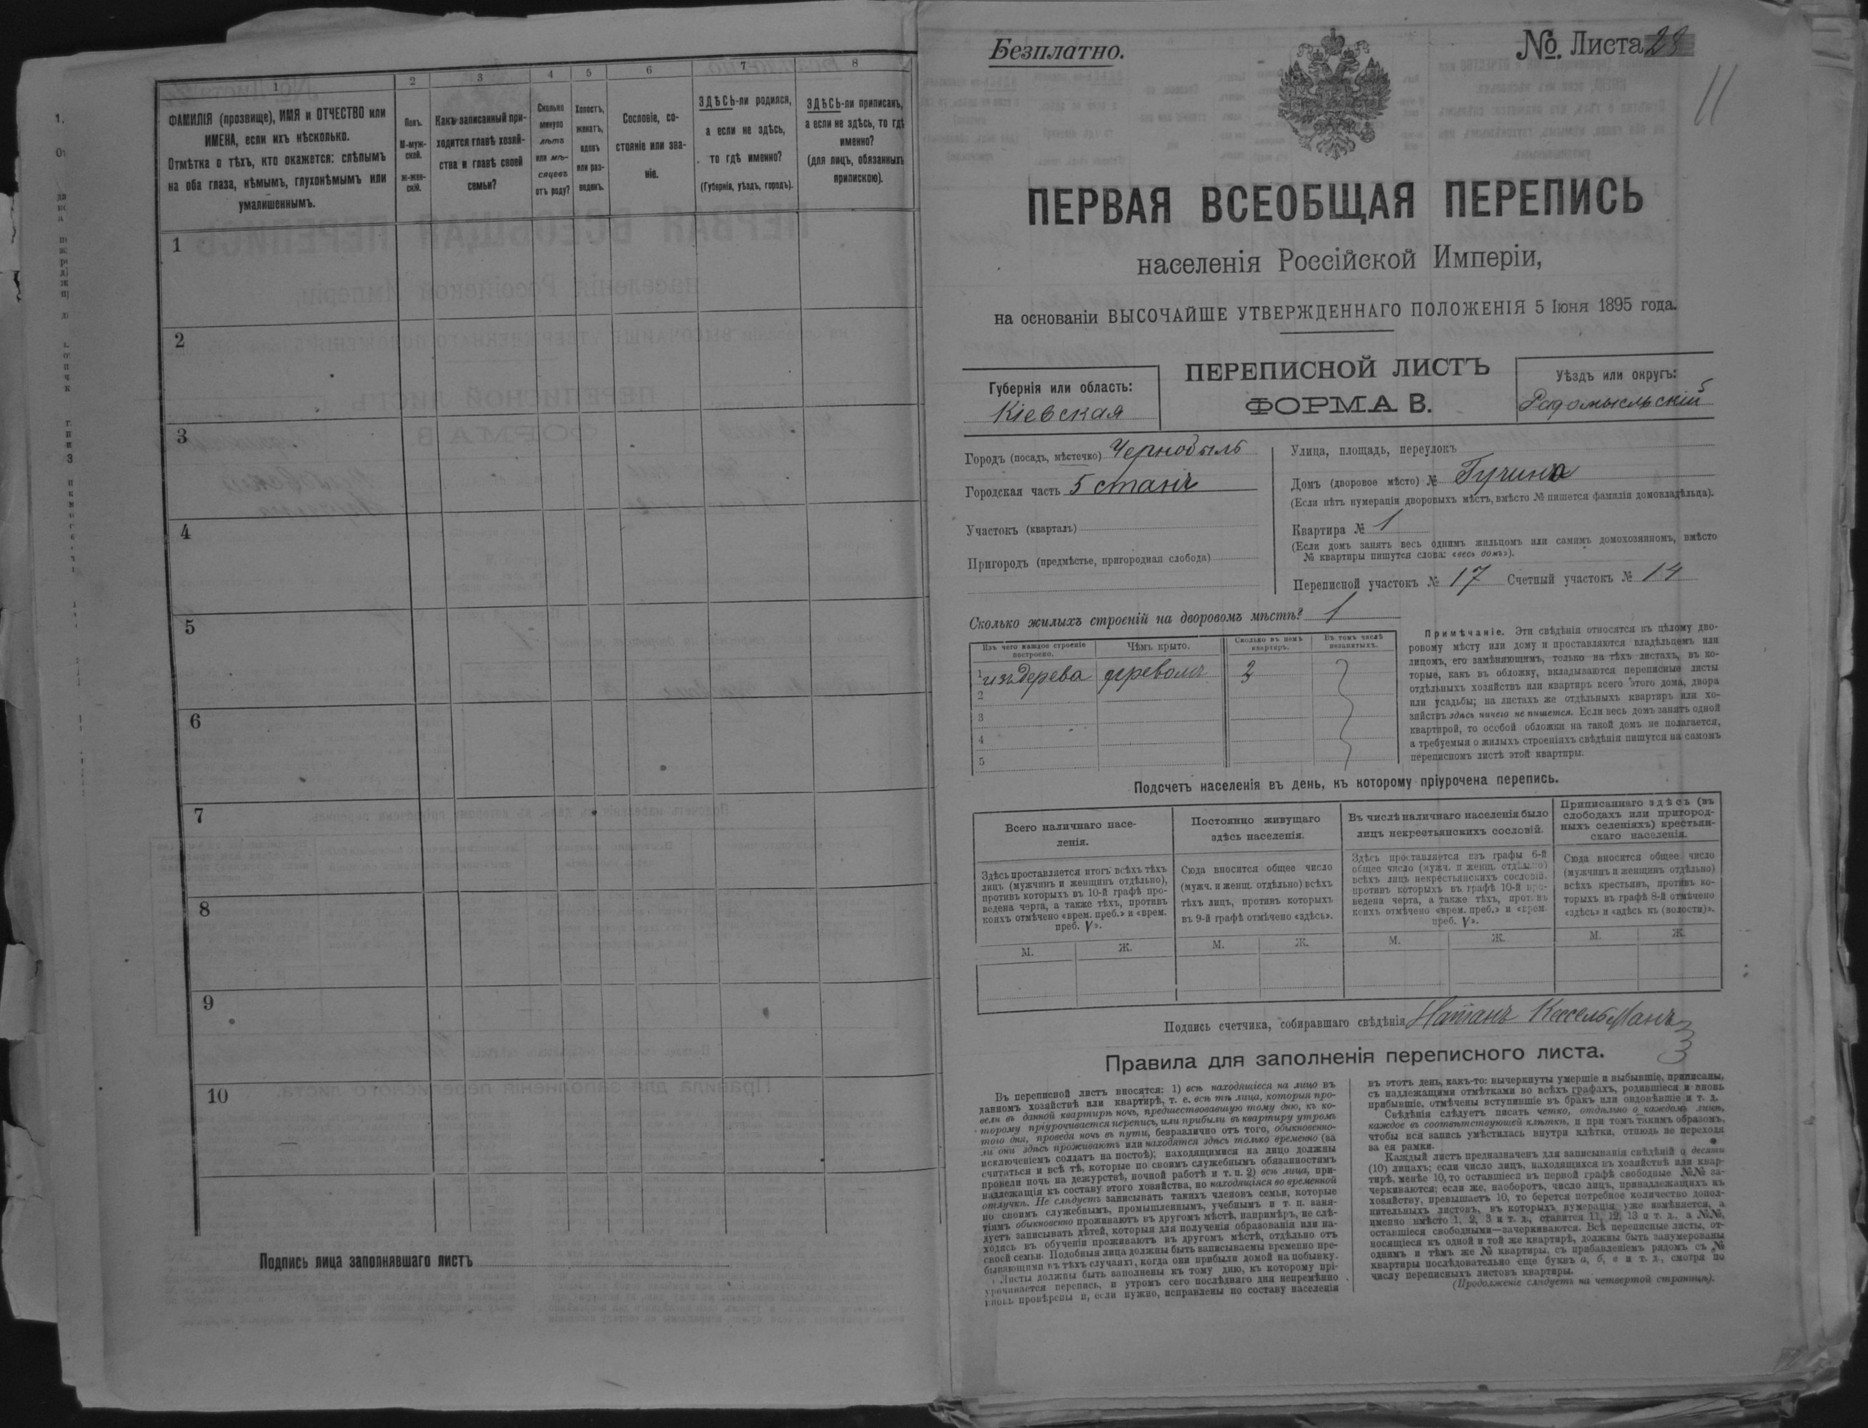 1
2
3
4
5
6
7
8
ФАМИЛІЯ (прозвище), ИМЯ и ОТЧЕСТВО или
ИМЕНА, если ихъ нѣсколько.
Отмѣтка о тѣхъ, кто окажется: слѣпымъ
на оба глаза, нѣмымъ, глухонѣмымъ или
умалишеннымъ.
Полъ.
М-муж-
ской.
Ж-жен-
скій.
Какъ записанный при-
ходится главѣ хозяй-
ства и главѣ своей
семьи?
Сколько
минуло
лѣтъ
или мѣ-
сяцевъ
отъ роду?
Холостъ,
женатъ,
вдовъ
или раз-
веденъ.
Сословіе, со-
стояніе или зва-
ніе.
ЗДѢСЬ-ли родился,
а если не здѣсь,
то гдѣ именно?
(Губернія, уѣздъ, городъ).
ЗДѢСЬ-ли приписанъ,
а если не здѣсь, то гдѣ
именно?
(для лицъ, обязанныхъ
припискою).
1
2
3
4
5
6
7
8
9
10
Подпись лица заполнявшаго листъ
Безплатно.
№ Листа 28
11
ПЕРВАЯ ВСЕОБЩАЯ ПЕРЕПИСЬ
населенія Россійской Имперіи,
на основаніи ВЫСОЧАЙШЕ УТВЕРЖДЕННАГО ПОЛОЖЕНІЯ 5 Іюня 1895 года.
Губернія или область:
Кіевская
ПЕРЕПИСНОЙ ЛИСТЪ
ФОРМА В.
Уѣздъ или округъ:
Радомысльскій
Городъ (посадъ, мѣстечко) Чернобыль
Городская часть 5 станъ
Участокъ (кварталъ)
Пригородъ (предмѣстье, пригородная слобода)
Улица, площадь, переулокъ
Домъ (дворовое мѣсто) №
(Если нѣтъ нумераціи дворовыхъ мѣстъ, вмѣсто № пишется фамилія домовладѣльца).
Квартира № 1
(Если домъ занятъ весь однимъ жильцомъ или самимъ домохозяиномъ, вмѣсто
№ квартиры пишутся слова: «весь домъ»).
Переписной участокъ № 17 Счетный участокъ № 14
Сколько жилыхъ строеній на дворовомъ мѣстѣ? 1
Изъ чего каждое строеніе
построено.
Чѣмъ крыто.
Сколько въ немъ
квартиръ.
Въ томъ числѣ
незанятыхъ.
1 изъ дерева деревомъ
2
3
4
5
Примѣчаніе. Эти свѣдѣнія относятся къ цѣлому дво-
ровому мѣсту или дому и проставляются владѣльцемъ или
лицомъ, его замѣняющимъ, только на тѣхъ листахъ, въ ко-
торые, какъ въ обложку, вкладываются переписные листы
отдѣльныхъ хозяйствъ или квартиръ всего этого дома, двора
или усадьбы; на листахъ же отдѣльныхъ квартиръ или хо-
зяйствъ здѣсь ничего не пишется. Если весь домъ занятъ одной
квартирой, то особой обложки на такой домъ не полагается,
а требуемыя о жилыхъ строеніяхъ свѣдѣнія пишутся на самомъ
переписномъ листѣ этой квартиры.
Подсчетъ населенія въ день, къ которому пріурочена перепись.
Всего наличнаго насе-
ленія.
Здѣсь проставляется итогъ всѣхъ тѣхъ
лицъ (мужчинъ и женщинъ отдѣльно),
противъ которыхъ въ 10-й графѣ про-
ведена черта, а также тѣхъ, противъ
коихъ отмѣчено «врем. преб.» и «врем.
преб. V».
Постоянно живущаго
здѣсь населенія.
Сюда вносится общее число
(мужч. и женщ. отдѣльно) всѣхъ
тѣхъ лицъ, противъ которыхъ
въ 9-й графѣ отмѣчено «здѣсь».
Въ числѣ наличнаго населенія было
лицъ некрестьянскихъ сословій.
Здѣсь проставляется изъ графы 6-й
общее число (мужч. и женщ. отдѣльно)
всѣхъ лицъ некрестьянскихъ сословій,
противъ которыхъ въ графѣ 10-й про-
ведена черта, а также тѣхъ, против ъ
коихъ отмѣчено «врем. преб.» и «врем.
преб. V».
Приписаннаго здѣсь (въ
слободахъ или пригород-
ныхъ селеніяхъ) крестьян-
скаго населенія.
Сюда вносится общее число
(мужчинъ и женщинъ отдѣльно)
всѣхъ крестьянъ, противъ ко-
торыхъ въ графѣ 8-й отмѣчено
«здѣсь» и «здѣсь къ (волости)».
М. Ж. М. Ж. М. Ж. М. Ж.
Подпись счетчика, собиравшаго свѣдѣнія Натанъ Кесельманъ
Правила для заполненія переписного листа.
Въ переписной листъ вносятся: 1) всѣ находящіеся на лицо въ
данномъ хозяйствѣ или квартирѣ, т. е. всѣ тѣ лица, которыя про-
вели въ данной квартирѣ ночь, предшествовавшую тому дню, къ ко-
торому пріурочивается перепись, или прибыли въ квартиру утромъ
того дня, проведя ночь въ пути, безразлично отъ того, обыкновенно-
ли они здѣсь проживаютъ или находятся здѣсь только временно (за
исключеніемъ солдатъ на постоѣ); находящимися на лицо должны
считаться и всѣ тѣ, которые по своимъ служебнымъ обязанностямъ
провели ночь на дежурствѣ, ночной работѣ и т. п. 2) всѣ лица, при-
надлежащія къ составу этого хозяйства, но находящіяся во временной
отлучкѣ. Не слѣдуетъ записывать такихъ членовъ семьи, которые
по своимъ служебнымъ, промышленнымъ, учебнымъ и т. п. заня-
тіямъ обыкновенно проживаютъ въ другомъ мѣстѣ, напримѣръ, не слѣ-
дуетъ записывать дѣтей, которыя для полученія образованія или на-
ходясь въ обученіи проживаютъ въ другомъ мѣстѣ, отдѣльно отъ
своей семьи. Подобныя лица должны быть записываемы временно пре-
бывающими въ тѣхъ случаяхъ, когда они прибыли домой на побывку.
Листы должны быть заполнены къ тому дню, къ которому прі-
урочивается перепись, и утромъ сего послѣдняго дня непремѣнно
вновь провѣрены и, если нужно, исправлены по составу населенія
въ этотъ день, какъ-то: вычеркнуты умершіе и выбывшіе, приписаны,
съ надлежащими отмѣтками во всѣхъ графахъ, родившіеся и вновь
прибывшіе, отмѣчены вступившіе въ бракъ или овдовѣвшіе и т. д.
Свѣдѣнія слѣдуетъ писать четко, отдѣльно о каждомъ лицѣ,
каждое въ соотвѣтствующей клѣткѣ, и при томъ такимъ образомъ,
чтобы вся запись умѣстилась внутри клѣтки, отнюдь не переходя
за ея рамки.
Каждый листъ предназначенъ для записыванія свѣдѣній о десяти
(10) лицахъ; если число лицъ, находящихся въ хозяйствѣ или квар-
тирѣ, менѣе 10, то оставшіеся въ первой графѣ свободные №№ за-
черкиваются; если же, наоборотъ, число лицъ, принадлежащихъ къ
хозяйству, превышаетъ 10, то берется потребное количество допол-
нительныхъ листовъ, въ которыхъ нумерація уже измѣняется, а
именно вмѣсто 1, 2, 3 и т. д., ставится 11, 12, 13 и т. д., а №№,
оставшіеся свободными—зачеркиваются. Всѣ переписные листы, от-
носящіеся къ одной и той же квартирѣ, должны быть занумерованы
однимъ и тѣмъ же № квартиры, съ прибавленіемъ рядомъ съ №
квартиры послѣдовательно еще буквъ а, б, в и т. д., смотря по
числу переписныхъ листовъ квартиры.
(Продолженіе слѣдуетъ на четвертой страницѣ).